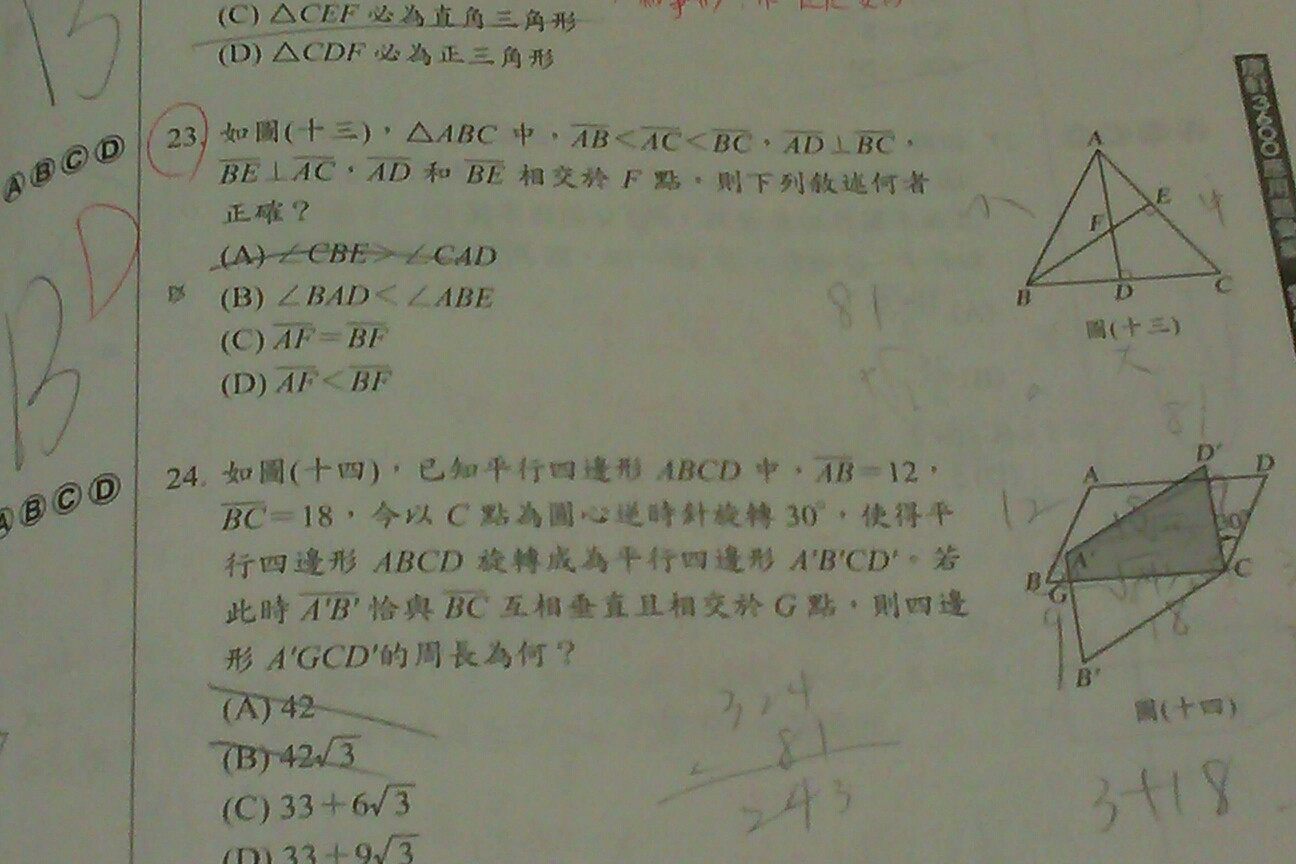 (C) △CEF 必為直角三角形
(D) △CDF 必為正三角形
B
ⒶⒷⒸⒹ
23. 如圖(十三)，△ABC 中，AB<AC<BC，AD⊥BC，
BE⊥AC，AD 和 BE 相交於 F 點，則下列敘述何者
正確？
(A) ∠CBE>∠CAD
(B) ∠BAD<∠ABE
(C) AF=BF
(D) AF<BF
A
E
F
B
D
C
圖(十三)
81
B
D
ⒶⒷⒸⒹ
24. 如圖(十四)，已知平行四邊形 ABCD 中，AB=12，
BC=18，今以 C 點為圓心逆時針旋轉 30°，使得平
行四邊形 ABCD 旋轉成為平行四邊形 A'B'CD'。若
此時 A'B' 恰與 BC 互相垂直且相交於 G 點，則四邊
形 A'GCD'的周長為何？
(A) 42
(B) 42√3
(C) 33+6√3
(D) 33+9√3
81
D'
A
D
12
30°
A'
B
G
C
9
18
B'
圖(十四)
324
- 81
243
3+18